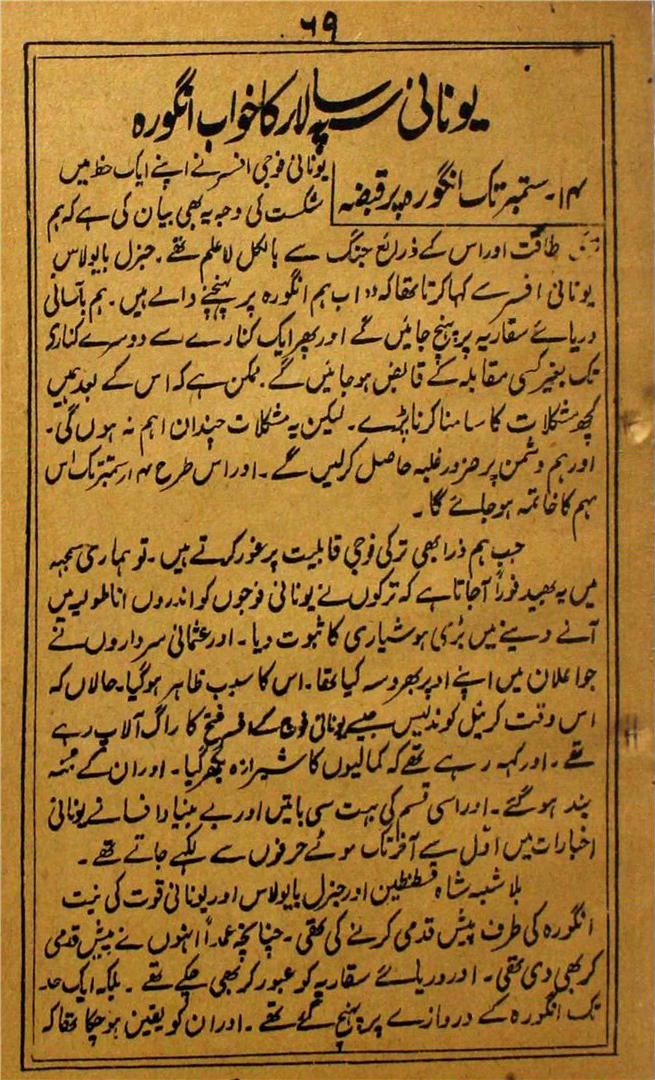 ۶۹
یونانی سپہ سالار کا خواب انگورہ
۱۴۔ ستمبر تک انگورہ پر قبضہ
یونانی فوجی افسر نے اپنے ایک خط میں
شکست کی وجہ یہ بھی بیان کی ہے کہ ہم
طاقت اور اس کے ذرایع جنگ سے بالکل لاعلم تھے۔ جنرل باپولاس
یونانی افسر سے کہا کرتا تھا کہ ”اب ہم انگورہ پر پہنچنے والے ہیں۔ ہم بآسانی
دریائے سقاریہ پر پہنچ جائیں گے اور پھر ایک کنارے سے دوسرے کنارے
تک بغیر کسی مقابلہ کے قابض ہو جائیں گے۔ ممکن ہے کہ اس کے بعد ہمیں
کچھ مشکلات کا سامنا کرنا پڑے۔ لیکن یہ مشکلات چنداں اہم نہ ہوں گی۔
اور ہم دشمن پر ضرور غلبہ حاصل کر لیں گے۔ اور اس طرح ۱۴ ستمبر تک اس
مہم کا خاتمہ ہو جائے گا۔
جب ہم ذرا بھی ترکی فوجی قابلیت پر غور کرتے ہیں۔ تو ہماری سمجہہ
میں یہ بھید فوراً آجاتا ہے کہ ترکوں نے یونانی فوجوں کو اندروں اناطولیہ میں
آنے دینے میں بڑی ہوشیاری کا ثبوت دیا۔ اور عثمانی سرداروں نے
جو اعلان میں اپنے اوپر بھروسہ کیا تھا۔ اس کا سبب ظاہر ہو گیا۔ حالاں کہ
اس وقت کرنیل کوندلیس جیسے یونانی فوج کے افسر فتح کا راگ آلاپ رہے
تھے۔ اور کہہ رہے تھے کہ کمالیوں کا شیرازہ بکھر گیا۔ اور ان کے منہ
بند ہو گئے۔ اور اسی قسم کی بہت سی باتیں اور بے بنیاد افسانے یونانی
اخبارات میں اوّل سے آخر تک موٹے حرفوں سے لکہے جاتے تھے۔
بلا شبہ شاہ قسطنطین اور جنرل باپولاس اور یونانی قوت کی نیت
انگورہ کی طرف پیش قدمی کرنے کی تھی۔ چنانچہ عمداً انہوں نے پیش قدمی
کر بھی دی تھی۔ اور دریائے سقاریہ کو عبور کر بھی چکے تھے۔ بلکہ ایک حد
تک انگورہ کے دروازے پر پہنچ گئے تھے۔ اور ان کو یقین ہو چکا تھا کہ